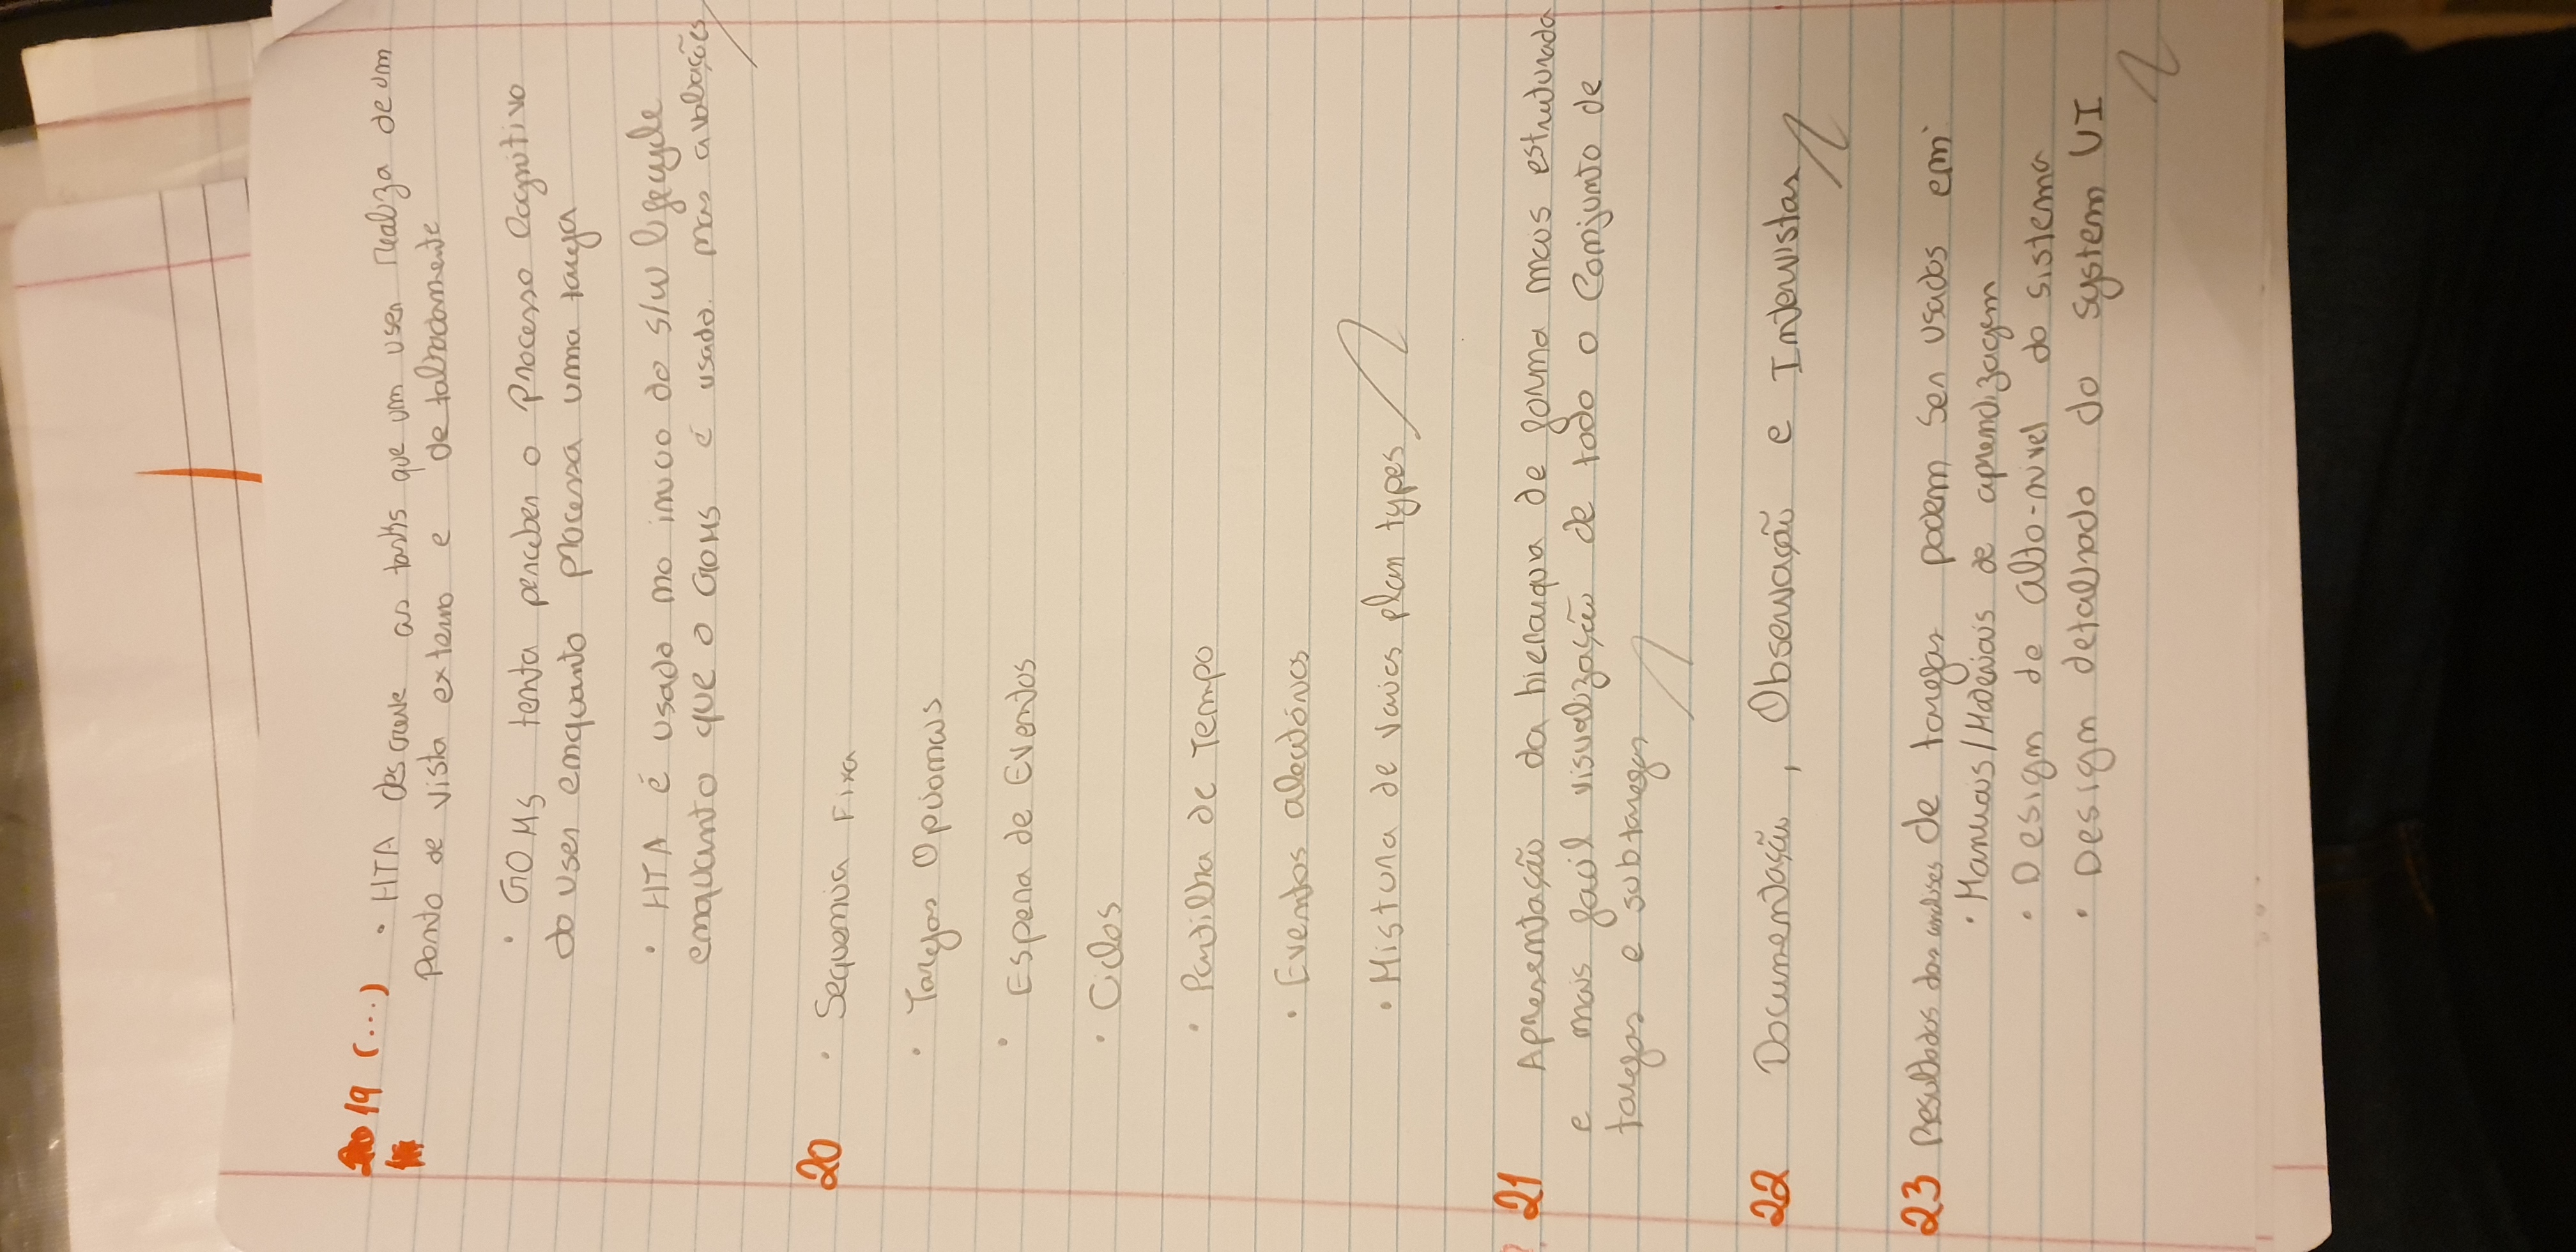 19 (...) • HTA descreve as tasks que um user realiza de um
ponto de vista externo e detalhadamente
• GOMS tenta perceber o Processo Cognitivo
do user enquanto processa uma tarefa
• HTA é usado no inicio do s/w lifecycle
enquanto que o GOMS é usado. nas avaliações
20 • Sequencia Fixa
• Tarefas Opcionais
• Espera de Eventos
• Ciclos
• Partilha de Tempo
• Eventos aleatórios
• Mistura de varios plan types
21 Apresentação da hierarquia de forma mais estruturada
e mais facil visualização de todo o conjunto de
tarefas e subtarefas
22 Documentação, Observação e Intervistas
23 Resultados das analises de tarefas podem ser usados em:
• Manuais/Materiais de aprendizagem
• Design de alto-nivel do sistema
• Design detalhado do system UI